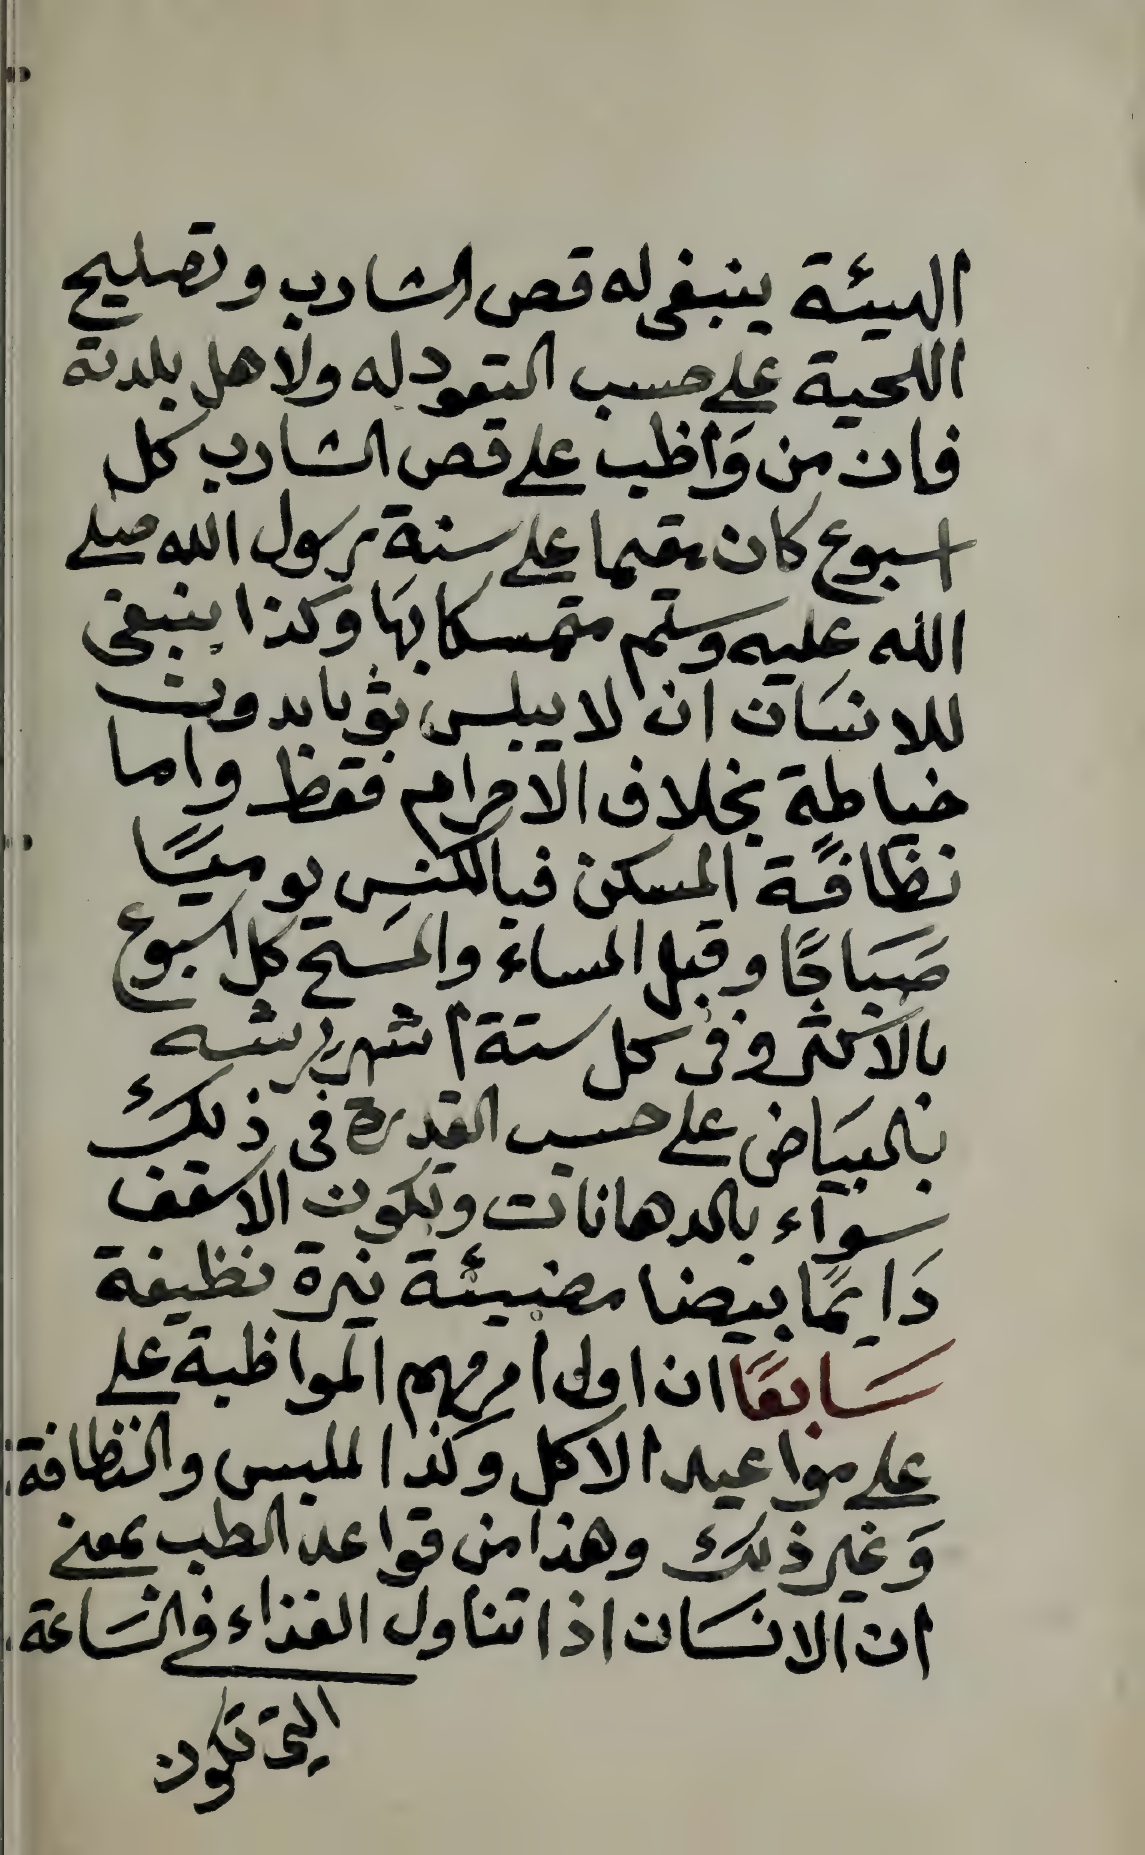 الهيئة ينبغى له قص الشارب وتصليح
اللحية على حسب التعود له ولاهل بلدته
فان من وَاظب على قص الشارب كل
اسبوع كان مقيما على سنة رسول الله صلى
الله عليه وسلم متمسكا بهَا وكذا ينبغى
للانسَان ان لا يبلس ثوبا بدون
خياطة بخلاف الاحرام فقط واما
نظافَة المسكن فبالكنسِ يوميًا
صَبَاحًا وقبل المساء والمَسَح كل اسبوع
بالاكثر وفى كل ستة اشهر يرشه
بالبيَاض على حسب القدرة فى ذلك
سوآء بالدهانات وتكون الاسقف
دَايمًا بيضا مضيئة نيرة نظيفة
سَابعًا ان اول امر مهم المواظبة على
على مواعيد الاكل وكذا الملبس والنظافة
وَغير ذلك وهذا من قواعد الطب بمعنى
ان الانسَان اذا تناول الغذاء فى السَاعة
التى تكون